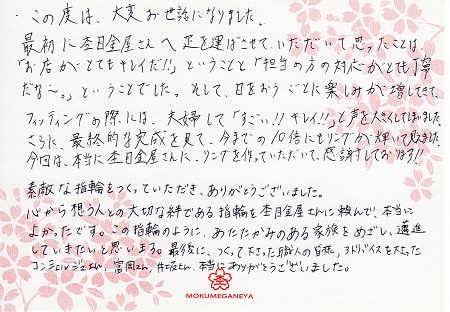 この度は、大変お世話になりました。
最初に杢目金屋さんへ足を運ばさせていただいて思ったことは、
「お店がとてもキレイだ!!」ということと「担当の方の対応がとても丁寧
だな～。」ということでした。そして、日をおうごとに楽しみが増してきて、
フィッティングの際には、夫婦して「すごい!! キレイ!!」と声を大きくしてしまいました。
さらに、最終的な完成を見て、今までの10倍にもリングが輝いて見えました。
今回は、本当に杢目金屋さんに、リングを作っていただいて、感謝しております!!
素敵な指輪をつくっていただき、ありがとうございました。
心から想う人との大切な絆である指輪を杢目金屋さんに頼んで、本当に
よかったです。この指輪のように、あたたかみのある家族をめざし、邁進
していきたいと思います。最後に、つくって下さった職人の皆様、アドバイスを下さった
コンシェルジュさん、富岡さん、井坂さん、本当にありがとうございました。
MOKUMEGANEYA